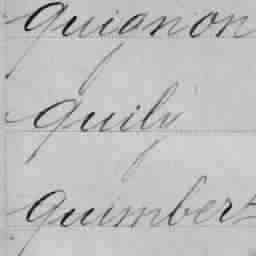 Quignon
Quily
Quimbert